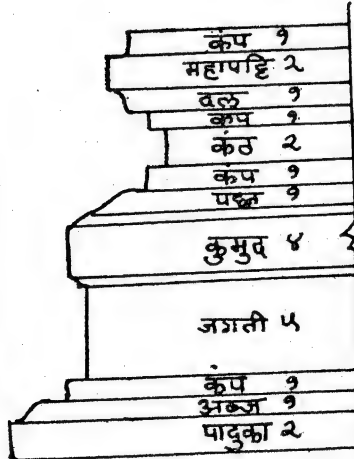 कंप १
महापट्टि २
दल १
कंप १
कंठ २
कंप १
पद्म १
कुमुद ४
जगती ५
कंप १
अब्ज १
पादुका २